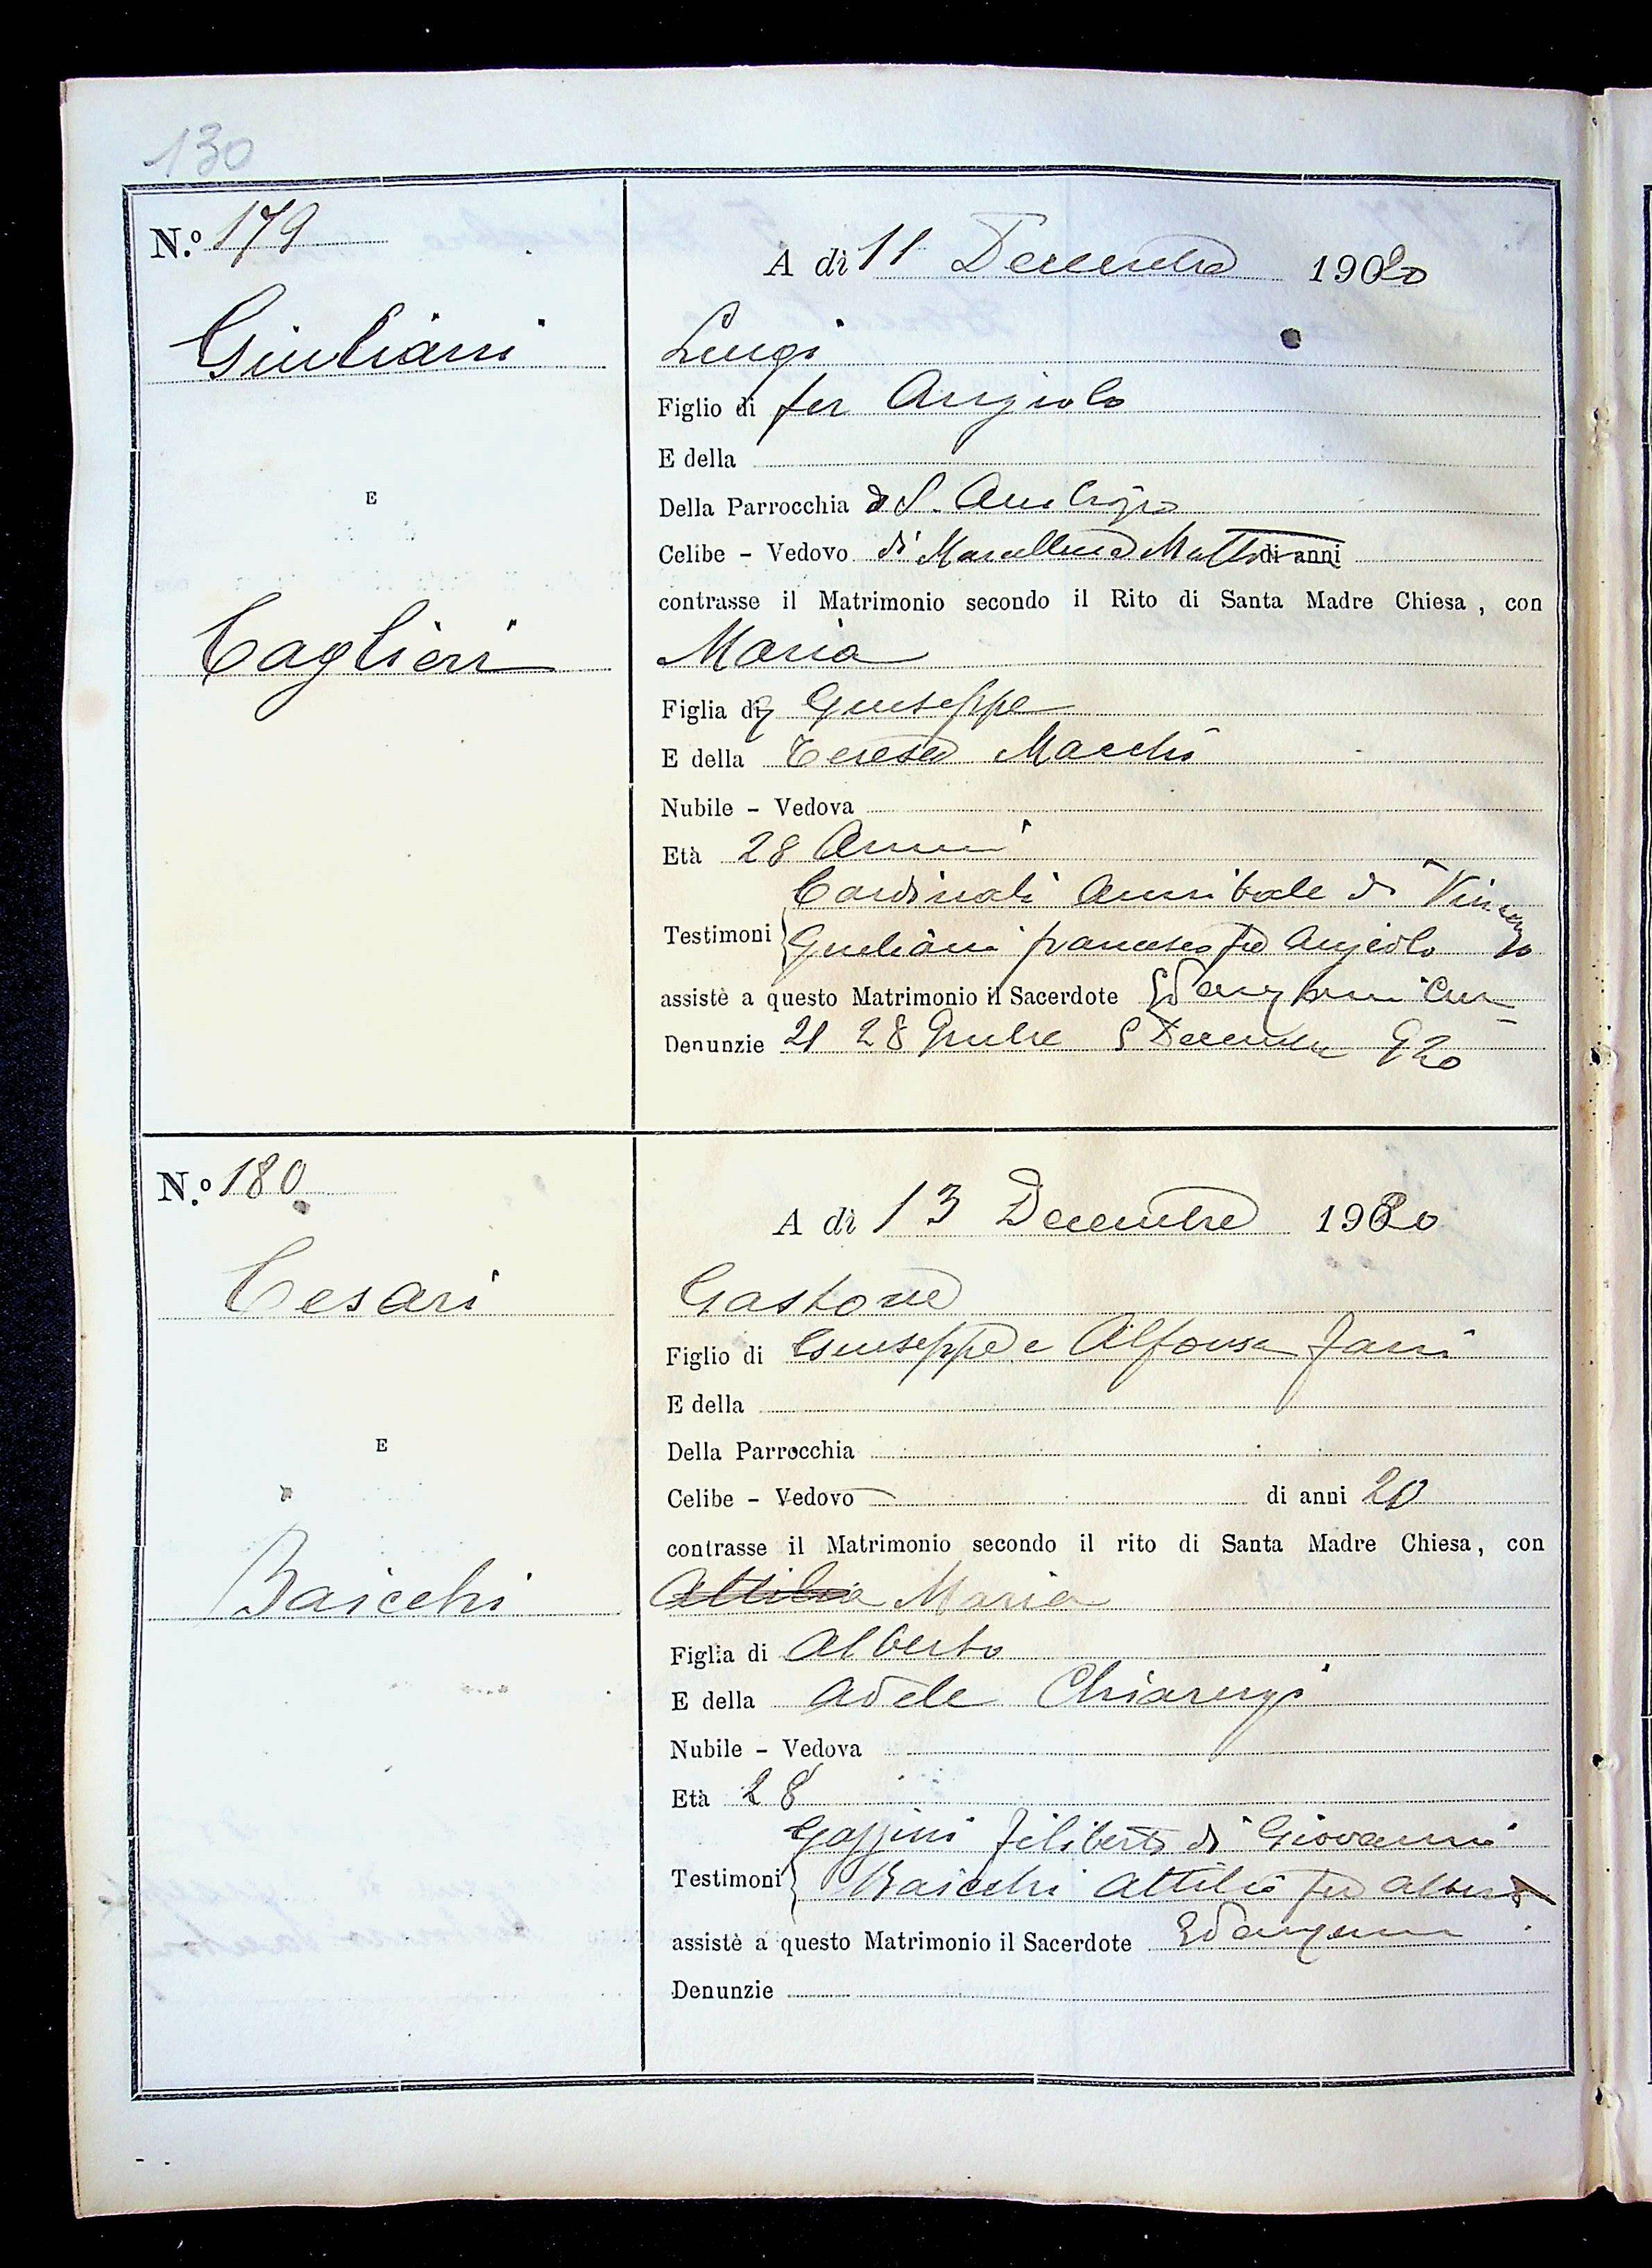 130
N.º 179
A dì 11 Decembre 1920
Giuliani
Luigi
Figlio di fu Angiolo
E della
E
Della Parrocchia di S. Ambrogio
Celibe - Vedovo di Marcellina di anni
contrasse il Matrimonio secondo il Rito di Santa Madre Chiesa, con
Caglieri
Maria
Figlia di Giuseppe
E della Teresa Macchi
Nubile - Vedova
Età 28 Anni
Cardinali Annibale di Vincenzo
Testimoni Giuliani francesco fu Angiolo
assistè a questo Matrimonio il Sacerdote
Denunzie 21 28 9mbre 5 Decembre 920
N.º 180
A dì 13 Decembre 1920
Cesari
Gastone
Figlio di Giuseppe e Alfonsa
E della
Della Parrocchia
E
Celibe - Vedovo di anni 20
contrasse il Matrimonio secondo il rito di Santa Madre Chiesa, con
Baicchi
Attilia Maria
Figlia di Alberto
E della Adele Chiarugi
Nubile - Vedova
Età 28
filiberto di Giovanni
Testimoni Baicchi Attilio fu Alberto
assistè a questo Matrimonio il Sacerdote
Denunzie